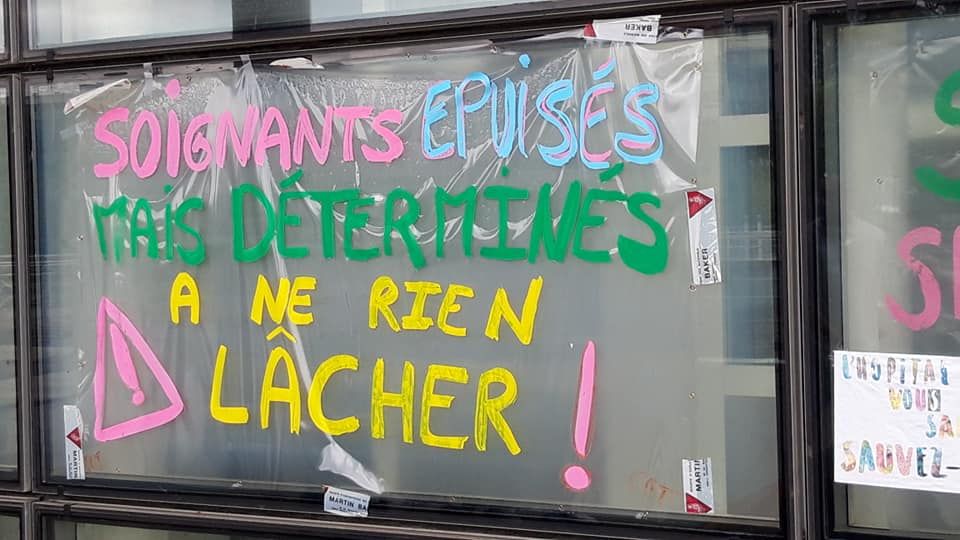 SOIGNANTS EPUISÉS
MAIS DÉTERMINÉS
A NE RIEN
LÂCHER !
!
BAKER
BAKER
MARTIN
MARTIN
MARTIN BA
L'HOPITAL
VOUS
SA
SAUVEZ-